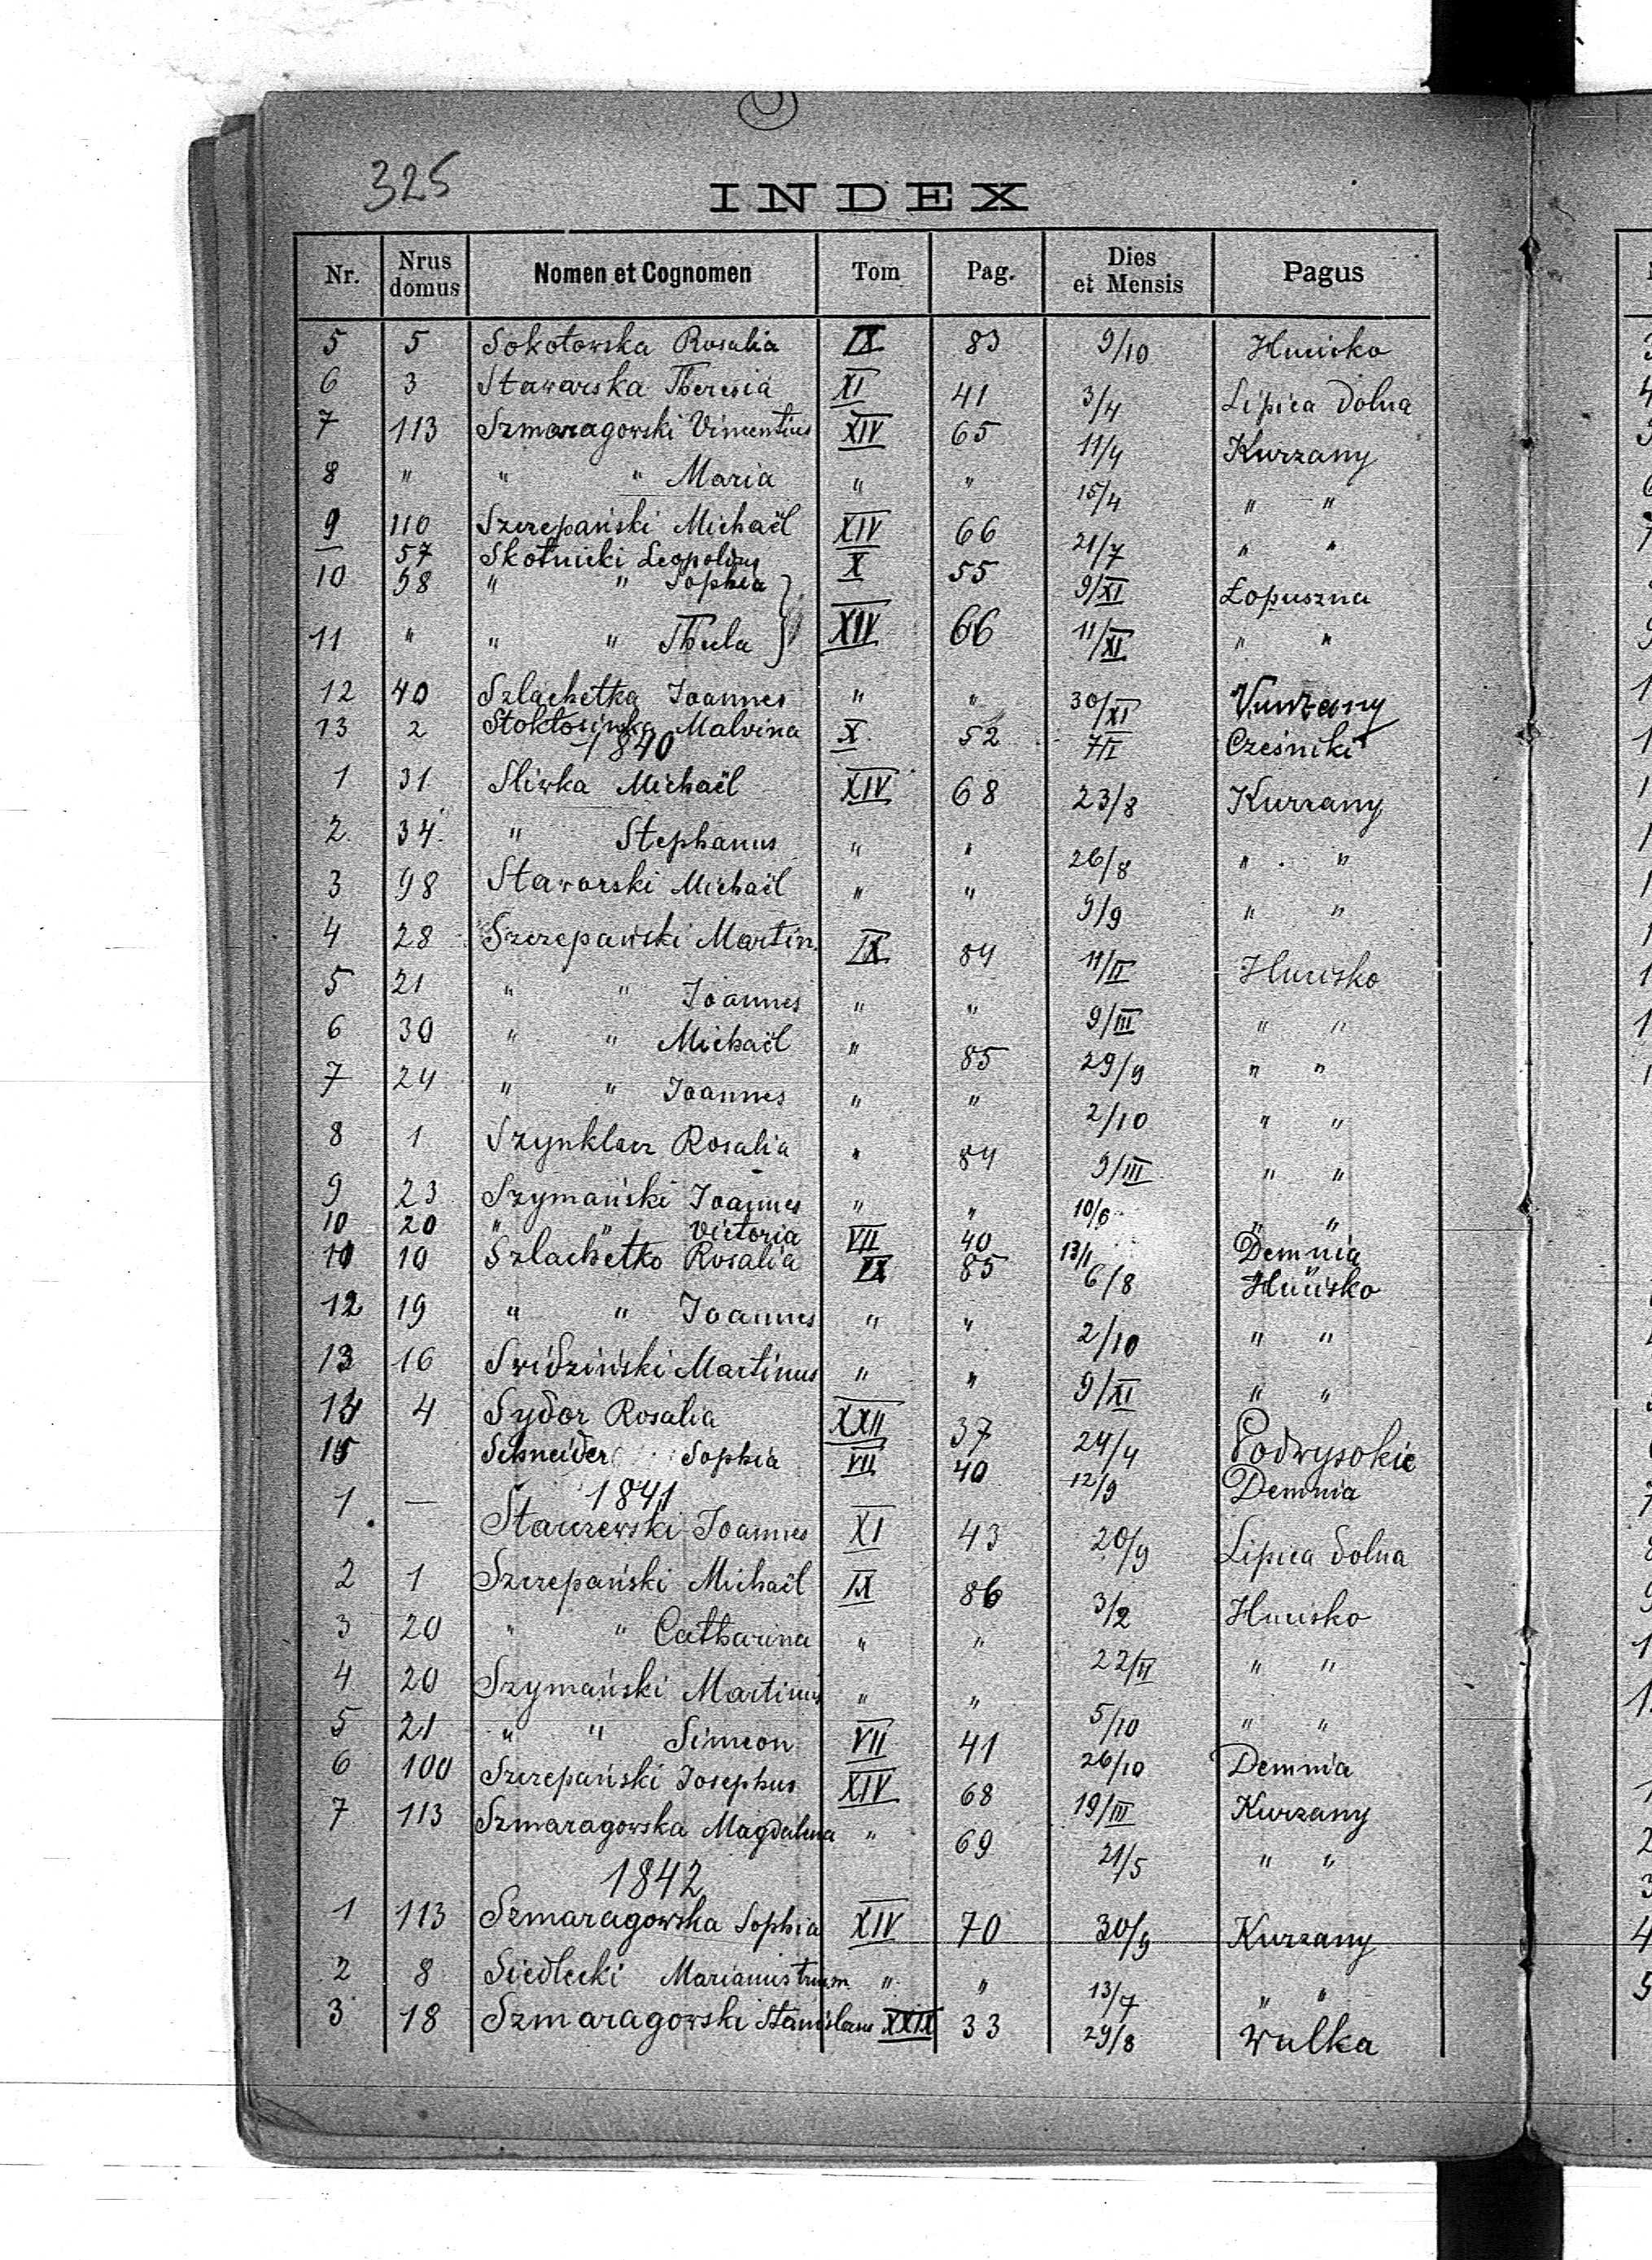 325
INDEX
Nr. Nrus domus Nomen et Cognomen Tom Pag. Dies et Mensis Pagus
5 5 Sokołowska Rosalia IX 83 9/10 Hucisko
6 3 Stawarska Theresia XI 41 3/4 Lipica dolna
7 113 Szmaragowski Vincentius XIV 65 11/4 Kurzany
8 " " " Maria " " 15/4 " "
9 110 Szczepański Michaël XIV 66 21/7 " "
57 Skotnicki Leopoldus X 55 9/XI Łopuszna
10 98 " " Sophia }
11 " " " Thecla } XIV 66 11/XI " "
12 40 Szlachetka Joannes " " 30/XI Kurzany
13 2 Malvina X 52 7/II Cześniki
1840
1 31 Sliwka Michaël XIV 68 23/8 Kurzany
2 34 " Stephanus " " 26/8 " "
3 98 Stawarski Michaël " " 9/9 " "
4 28 Szczepański Martin. IX 84 11/II Hucisko
5 21 " " Joannes " " 9/III " "
6 30 " " Michaël " 85 29/9 " "
7 24 " " Joannes " " 2/10 " "
8 1 Szynklarz Rosalia " 84 9/III " "
9 23 Szymański Joannes " " 10/6 " "
10 20 " " Victoria VII 40 13/1 Demnia
10 Szlachetko Rosalia IX 85 6/8 Hucisko
12 19 " " Joannes " " 2/10 " "
13 16 Swidziński Martinus " " 9/XI " "
14 4 Sydor Rosalia XXII 37 24/4 Podwysokie
15 Schneider Sophia VII 40 12/9 Demnia
1841
1 — Staczewski Joannes XI 43 20/9 Lipica dolna
2 1 Szczepański Michaël IX 86 3/2 Hucisko
3 20 " " Catharina " " 22/II " "
4 20 Szymański Martinus " " 5/10 " "
5 21 " " Simeon VII 41 26/10 Demnia
6 100 Szczepański Josephus XIV 68 19/III Kurzany
7 113 Szmaragowska Magdalena " 69 21/5 " "
1842
1 113 Szmaragowska Sophia XIV 70 30/9 Kurzany
2 8 Siedlecki Marianus " " 13/7 " "
3 18 Szmaragowski Stanislaus XXIX 33 29/8 Wulka